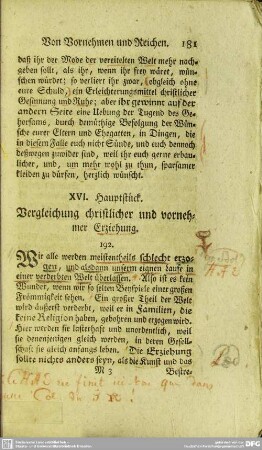 Von Vornehmen und Reichen. 181
daß ihr der Mode der vereitelten Welt mehr nach-
geben sollt, als ihr, wenn ihr frey wäret, wün-
schen würdet; so verliert ihr zwar, (obgleich ohne
eure Schuld,) ein Erleichterungsmittel christlicher
Gesinnung und Ruhe; aber ihr gewinnt auf der
andern Seite eine Uebung der Tugend des Ge-
horsams, durch demüthige Befolgung der Wün-
sche eurer Eltern und Ehegatten, in Dingen, die
in diesem Falle euch nicht Sünde, und euch dennoch
deßwegen zuwider sind, weil ihr euch gerne erbau-
licher, und, um mehr wohl zu thun, sparsamer
kleiden zu dürfen, herzlich wünscht.
XVI. Hauptstück.
Vergleichung christlicher und vorneh-
mer Erziehung.
192.
Wir alle werden meistentheils schlecht erzo-
gen, und alsdann unserm eignen Laufe in
einer verderbten Welt überlassen. Also ist es kein
Wunder, wenn wir so selten Beyspiele einer großen
Frömmigkeit sehen. Ein großer Theil der Welt
wird äußerst verderbt, weil er in Familien, die
keine Religion haben, gebohren und erzogen wird.
Hier werden sie lasterhaft und unordentlich, weil
sie denenjenigen gleich werden, in deren Gesell-
schaft sie gleich anfangs leben. Die Erziehung
sollte nichts anders seyn, als die Kunst und das
M 3 Bestre-